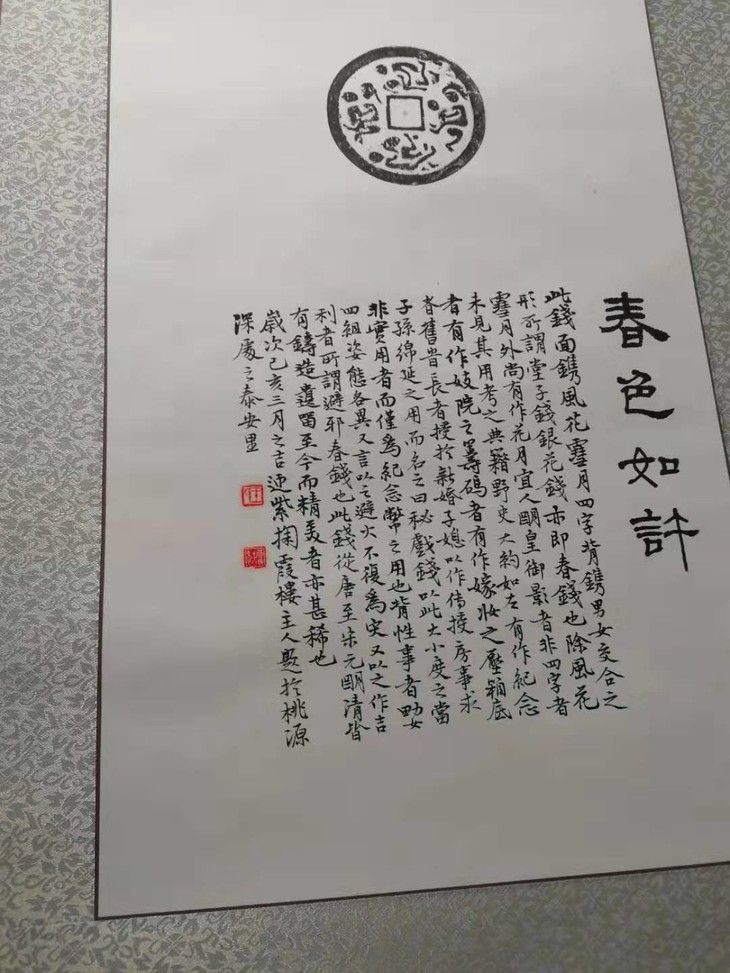 春色如許
此錢面鐫風花雪月四字背鐫男女交合之
形所謂堂子錢銀花錢亦即春錢也除風花
雪月外尚有作花月宜人明皇御影者非四字者
未見其用考之典籍野史大約如左有作紀念
者有作妓院之籌碼者有作嫁妝之壓箱底
者舊貴長者授於新婚子媳以作傳授房事求
子孫綿延之用而名之曰秘戲錢以此大小度之當
非實用者而僅為紀念幣之用也背性事者男女
四組姿態各異又言以之避火不復為灾又以之作吉
利者所謂避邪春錢也此錢從唐至宋元明清皆
有鑄造遺留至今而精美者亦甚稀也
歲次己亥三月之吉迎紫掬霞樓主人題於桃源
深處之泰安里